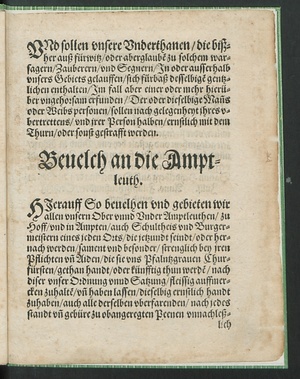 VNd sollen vnsere Vnderthanen / die biß-
her auß fürwitz / oder aberglaubẽ zu solchem war-
sagern / Zauberern / vnd Segnern / In oder ausserhalb
vnsers Gebiets gelauffen / sich fürbaß desselbigẽ gentz-
lichen enthalten / Im fall aber einer oder mehr hierü-
ber vngehorsam erfunden / Der oder dieselbige Mañs
oder Weibs personen / sollen nach gelegenheyt ihres v-
bertrettens / vnd irer Person halben / ernstlich mit dem
Thurn / oder sonst gestrafft werden.
Beuelch an die Ampt-
leuth.
HJerauff So beuelhen vnd gebieten wir
allen vnsern Ober vnnd Vnder Ampleuthen / zu
Hoff / vnd in Ampten / auch Schultheis vnd Burge-
meistern eines jeden Orts / die jetzundt seindt / oder her-
nach werden / sament vnd besonder / strenglich bey iren
Pflichten vñ Aiden / die sie vns Pfaltzgrauen Chur-
fürsten / gethan handt / oder künfftig thun werdẽ / nach
diser vnser Ordnung vnnd Satzung / fleissig auffmer-
cken zuhaltẽ / vñ haben lassen / dieselbig ernstlich handt
zuhaben / auch alle derselben vberfarenden / nach jedes
standt vñ gebür zu obangeregten Peenen vnnachleß-
lich